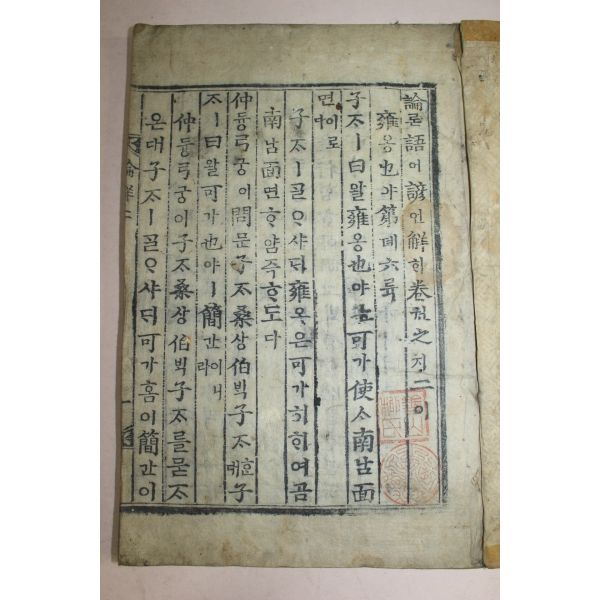 論론語어諺언解ᄒᆡ卷권之지二이
雍옹也야第뎨六륙
子ᄌᆞㅣ曰왈雍옹也야ᄂᆞᆫ可가使ᄉᆞ南남面
면이로다
子ᄌᆞㅣ ᄀᆞᆯᄋᆞ샤ᄃᆡ雍옹은可가히ᄒᆞ여곰
南남面면ᄒᆞ얌즉ᄒᆞ도다
仲듕弓궁이問문子ᄌᆞ桑상伯ᄇᆡᆨ子ᄌᆞᄒᆞᆫ대子
ᄌᆞㅣ曰왈可가也야ㅣ簡간이니라
仲듕弓궁이子ᄌᆞ桑상伯ᄇᆡᆨ子ᄌᆞ를묻ᄌᆞ
온대子ᄌᆞㅣ ᄀᆞᆯᄋᆞ샤ᄃᆡ可가홈이簡간이